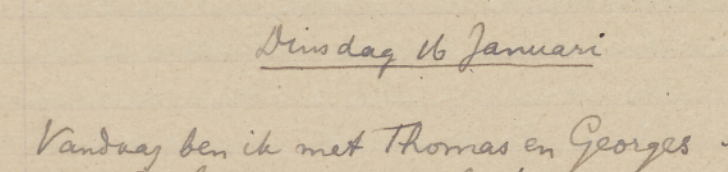 Dinsdag 16 Januari
Vandaag ben ik met Thomas en Georges